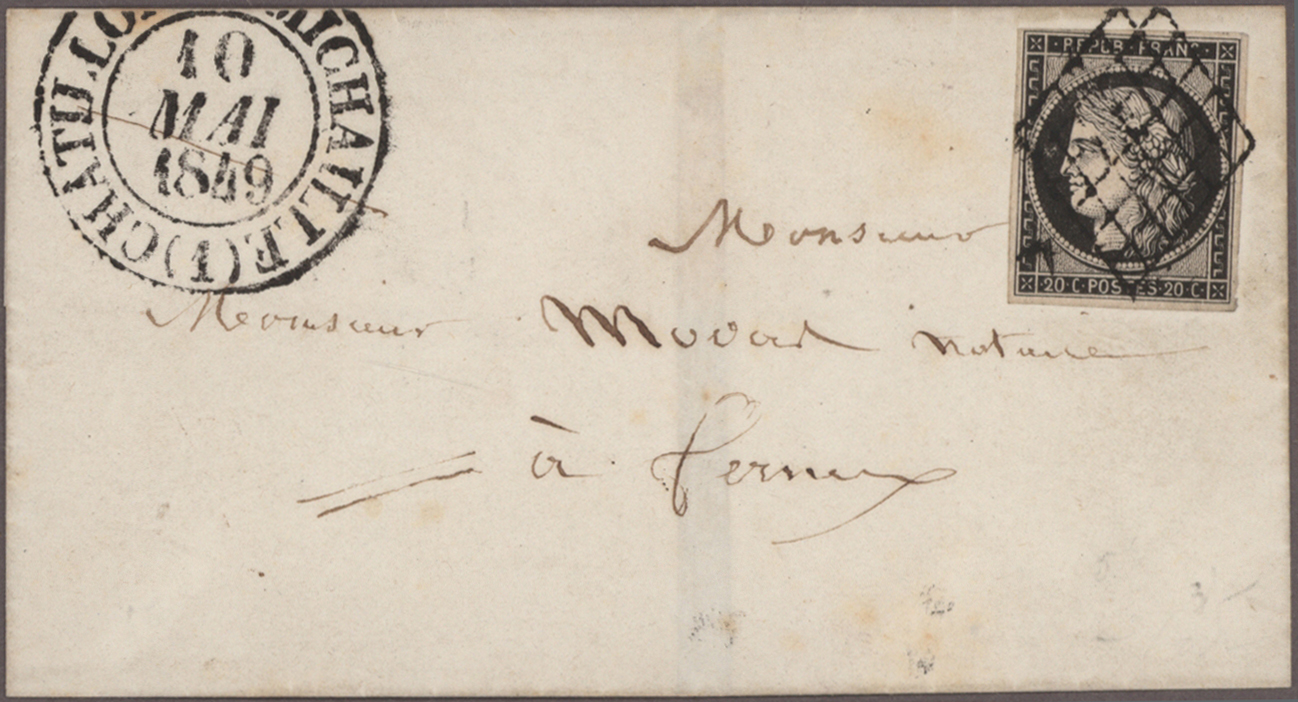 CHATILLON-MICHAILLE (1)
10
MAI
1849
REPUB · FRANC
20 · C · POSTES · 20 · C
Monsieur
Monsieur notaire
à fernex